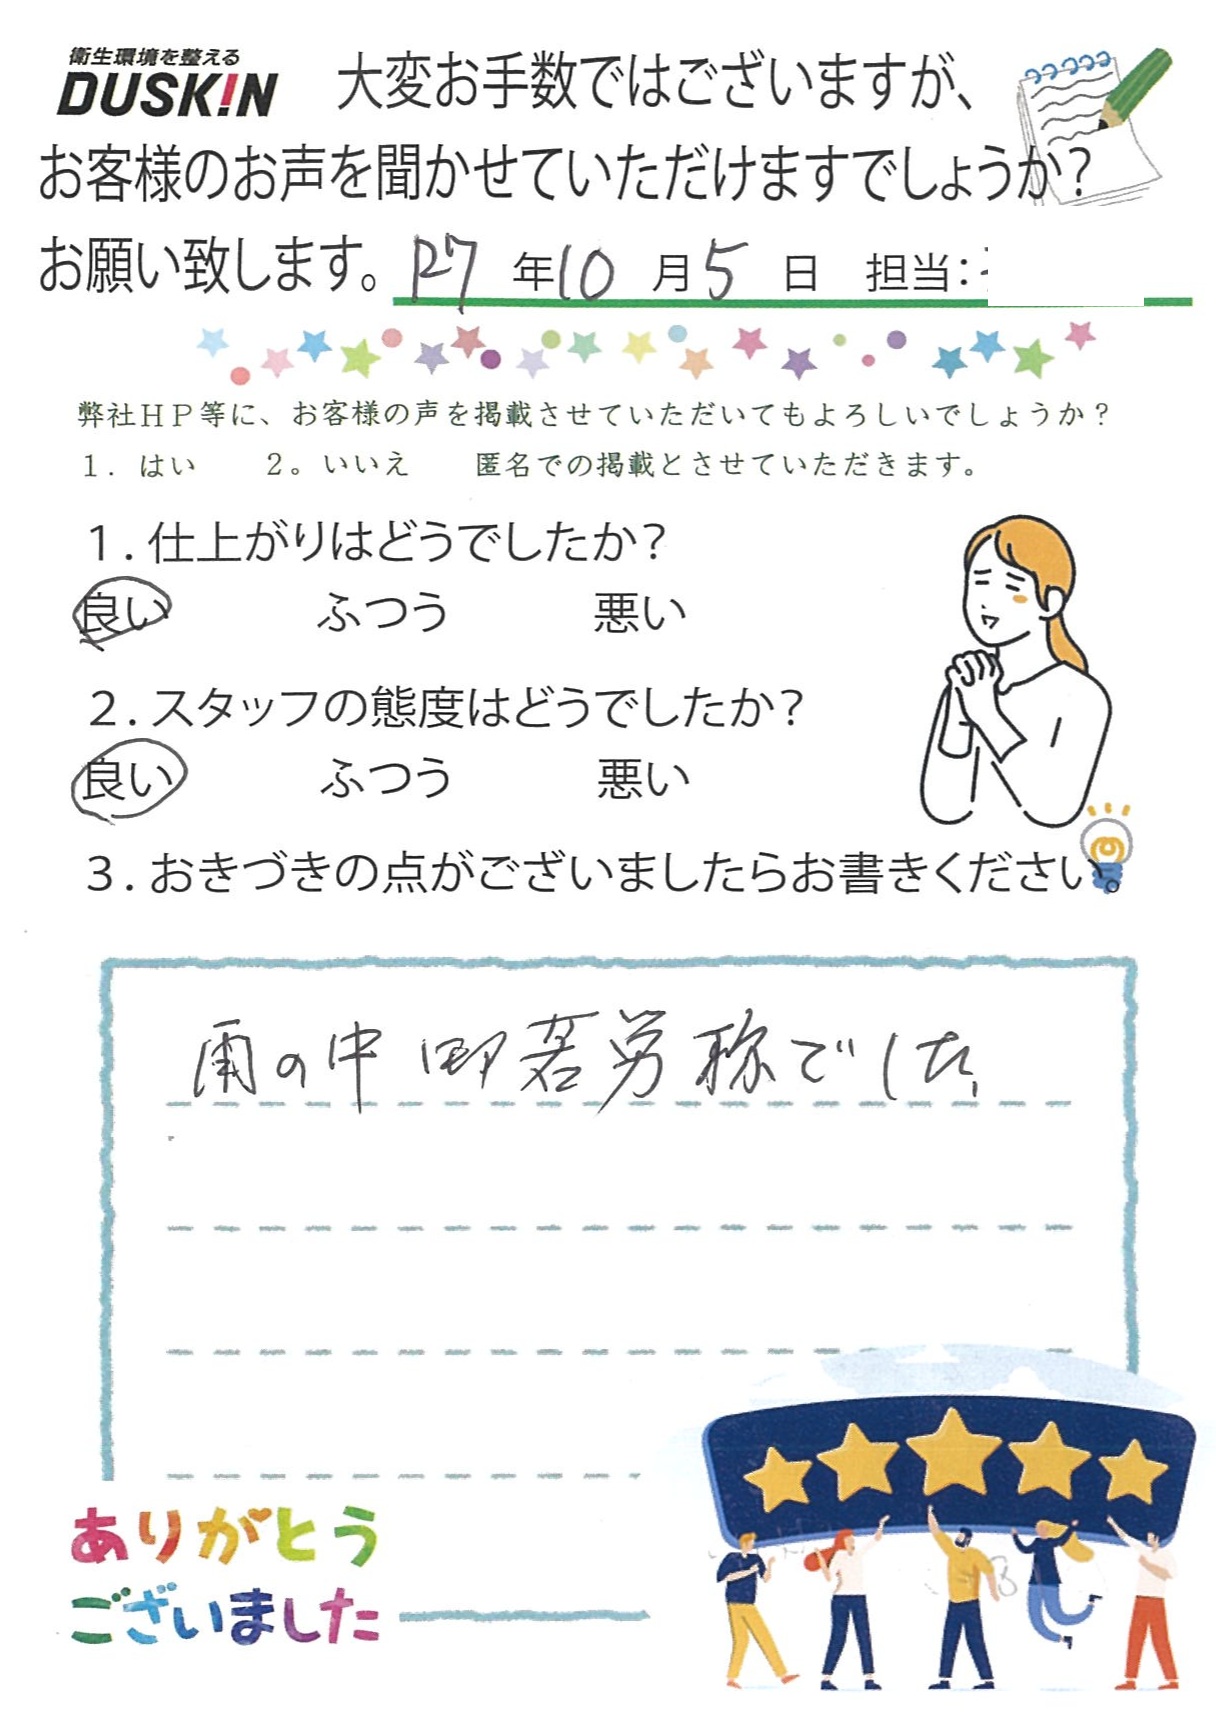 衛生環境を整える
DUSKIN 大変お手数ではございますが、
お客様のお声を聞かせていただけますでしょうか？
お願い致します。R7年10月5日 担当：
弊社ＨＰ等に、お客様の声を掲載させていただいてもよろしいでしょうか？
１．はい ２。いいえ 匿名での掲載とさせていただきます。
１．仕上がりはどうでしたか？
良い ふつう 悪い
２．スタッフの態度はどうでしたか？
良い ふつう 悪い
３．おきづきの点がございましたらお書きください
雨の中 御苦労様でした
ありがとう
ございました